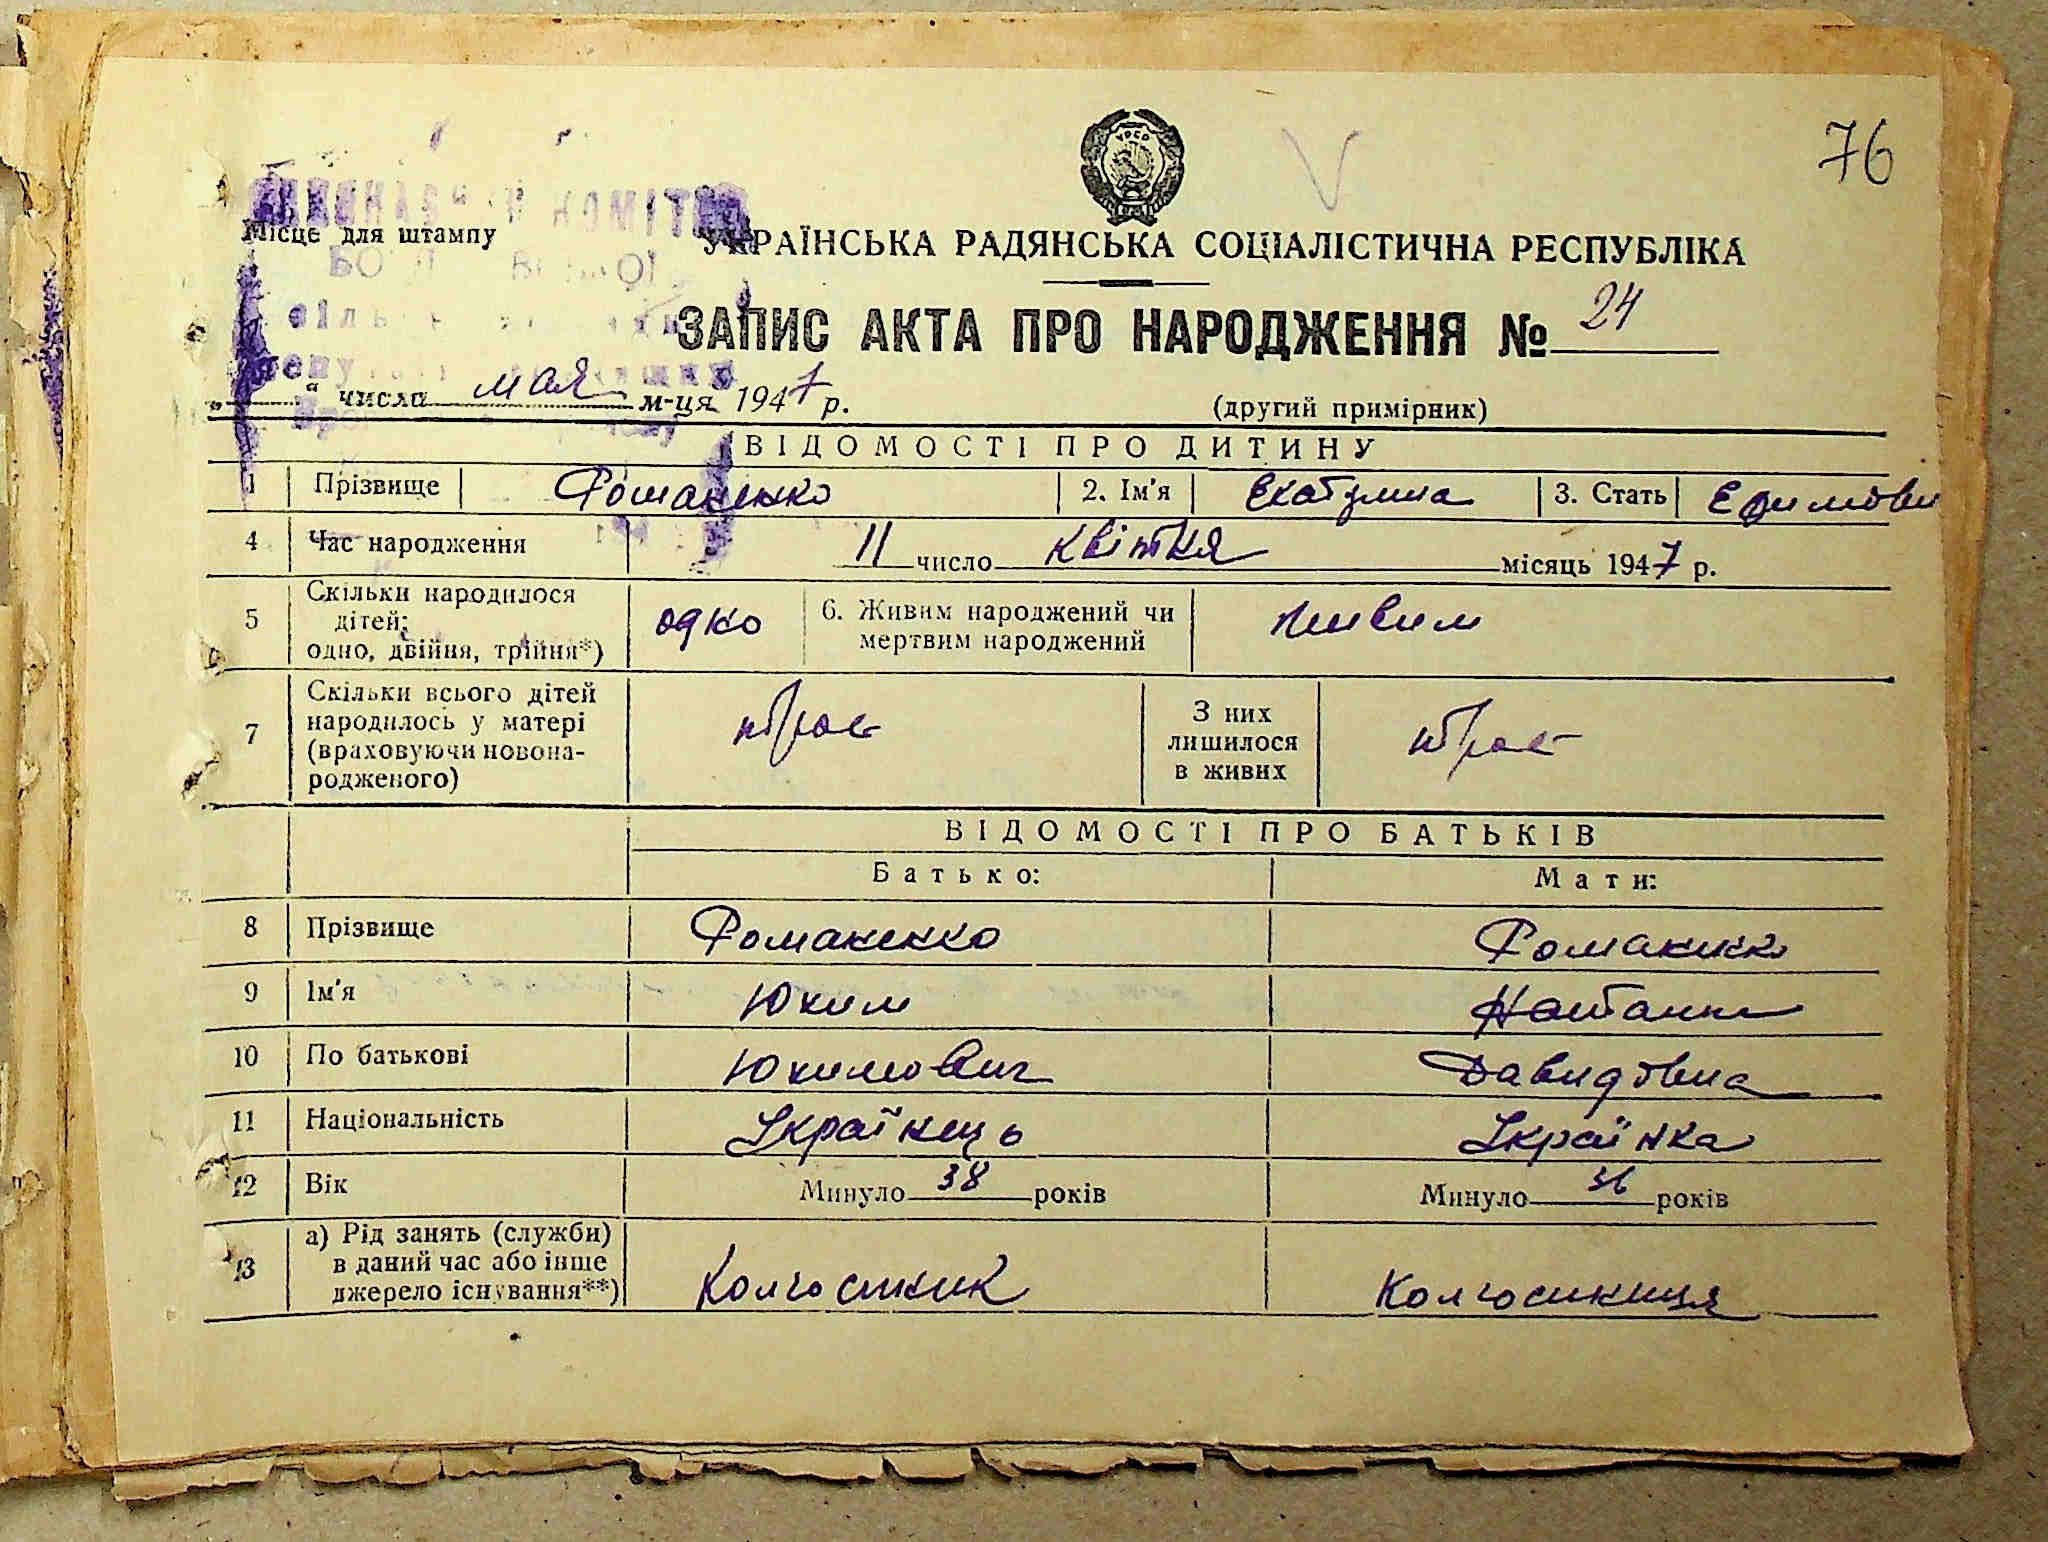 76
УРСР
Місце для штампу
УКРАЇНСЬКА РАДЯНСЬКА СОЦІАЛІСТИЧНА РЕСПУБЛІКА
ЗАПИС АКТА ПРО НАРОДЖЕННЯ № 24
„ “ числа мая м-ця 1947 р.
(другий примірник)
ВІДОМОСТІ ПРО ДИТИНУ
1 Прізвище Романенко 2. Ім'я Екатерина 3. Стать Ефимовн
4 Час народження 11 число квітня місяць 1947 р.
5 Скільки народилося дітей: одно, двійня, трійня*) одно 6. Живим народжений чи мертвим народжений живим
7 Скільки всього дітей народилось у матері (враховуючи новонародженого) З них лишилося в живих
ВІДОМОСТІ ПРО БАТЬКІВ
Батько: Мати:
8 Прізвище Романенко Романенко
9 Ім'я Юхим
10 По батькові Юхимович Давидовна
11 Національність Українець Українка
12 Вік Минуло 38 років Минуло 36 років
13 а) Рід занять (служби) в даний час або інше джерело існування**) Колгоспник Колгоспниця